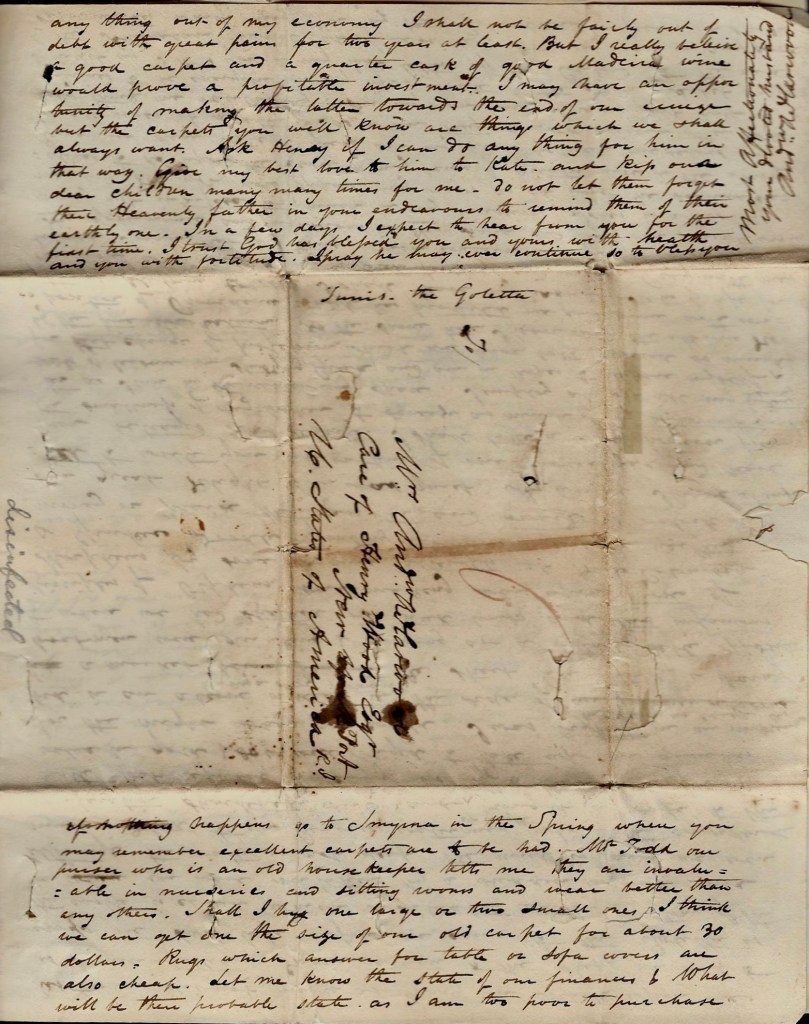 any thing out of my economy I shall not be fairly out of
debt with great pains for two years at least. But I really beleive
a good carpet and a quarter cask of good Madeira wine
would prove a profitable investment. I may have an oppor
tunity of making the latter towards the end of our cruize
but the carpets you will know are things which we shall
always want. Ask Henry if I can do any thing for him in
that way. Give my best love to him to Kate. and kiss our
dear children many many times for me - do not let them forget
their Heavenly father in your endeavours to remind them of their
earthly one. In a few days I expect to hear from you for the
first time. I trust God has blessed you and yours with health
and you with fortitude. I pray he may ever continue so to bless you
Most Affectionately
your devoted husband
Andw A Harwood
Tunis. the Goletta
To,
Mrs Andw A Harwood
Care of Henry Wood Esqr
New Port
U. States of America R.I.
disinfected
happens go to Smyrna in the Spring where you
may remember excellent carpets are to be had. Mr Todd our
purser who is an old housekeeper tells me they are invalu=
=able in nurseries and sitting rooms and wear better than
any others. Shall I buy one large or two small ones, I think
we can get one the size of our old carpet for about 30
dollars. Rugs which answer for table or sofa covers are
also cheap. Let me know the state of our finances & What
will be their probable state. as I am too poor to purchase